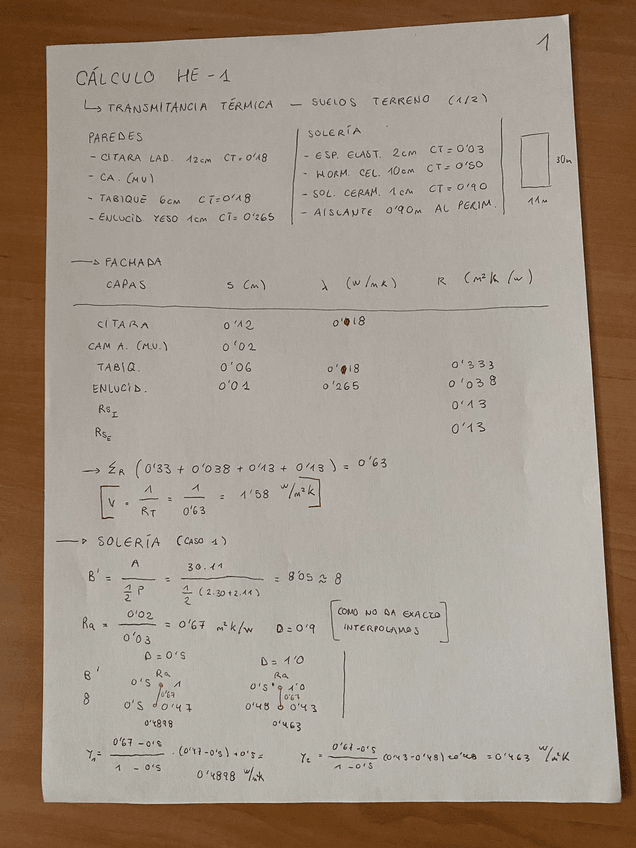 1
CÁLCULO HE-1
↳ TRANSMITANCIA TÉRMICA — SUELOS TERRENO (1/2)
PAREDES
- CITARA LAD. 12cm CT=0'18
- CA. (MV)
- TABIQUE 6cm CT=0'18
- ENLUCID YESO 1cm CT=0'265
SOLERÍA
- ESP. ELAST. 2cm CT=0'03
- HORM. CEL. 10cm CT=0'50
- SOL. CERAM. 1cm CT=0'90
- AISLANTE 0'90m AL PERIM.
30m
11m
→ FACHADA
CAPAS S (M) λ (W/MK) R (m²K/W)
CITARA 0'12 0'18
CAM A. (M.V.) 0'02
TABIQ. 0'06 0'18 0'333
ENLUCID. 0'01 0'265 0'038
RS_I 0'13
RS_E 0'13
→ Σ_R (0'33 + 0'038 + 0'13 + 0'13) = 0'63
[V = 1/RT = 1/0'63 = 1'58 W/m²K]
→ SOLERÍA (CASO 1)
B' = A / ½ P = 30.11 / ½ (2.30+2.11) = 8'05 ≈ 8
Ra = 0'02 / 0'03 = 0'67 m²K/W D=0'9 [COMO NO DA EXACTO
INTERPOLAMOS]
D=0'5 D=1'0
B' Ra Ra
0'5 1 0'5 1'0
0'67 0'67
8 0'5 0'47 0'48 0'43
0'4898 0'463
Y₁= 0'67-0'5 / 1-0'5 · (0'47-0'5)+0'5=
0'4898 W/m²K
Y₂ = 0'67-0'5 / 1-0'5 (0'43-0'48)+0'48 = 0'463 W/m²K